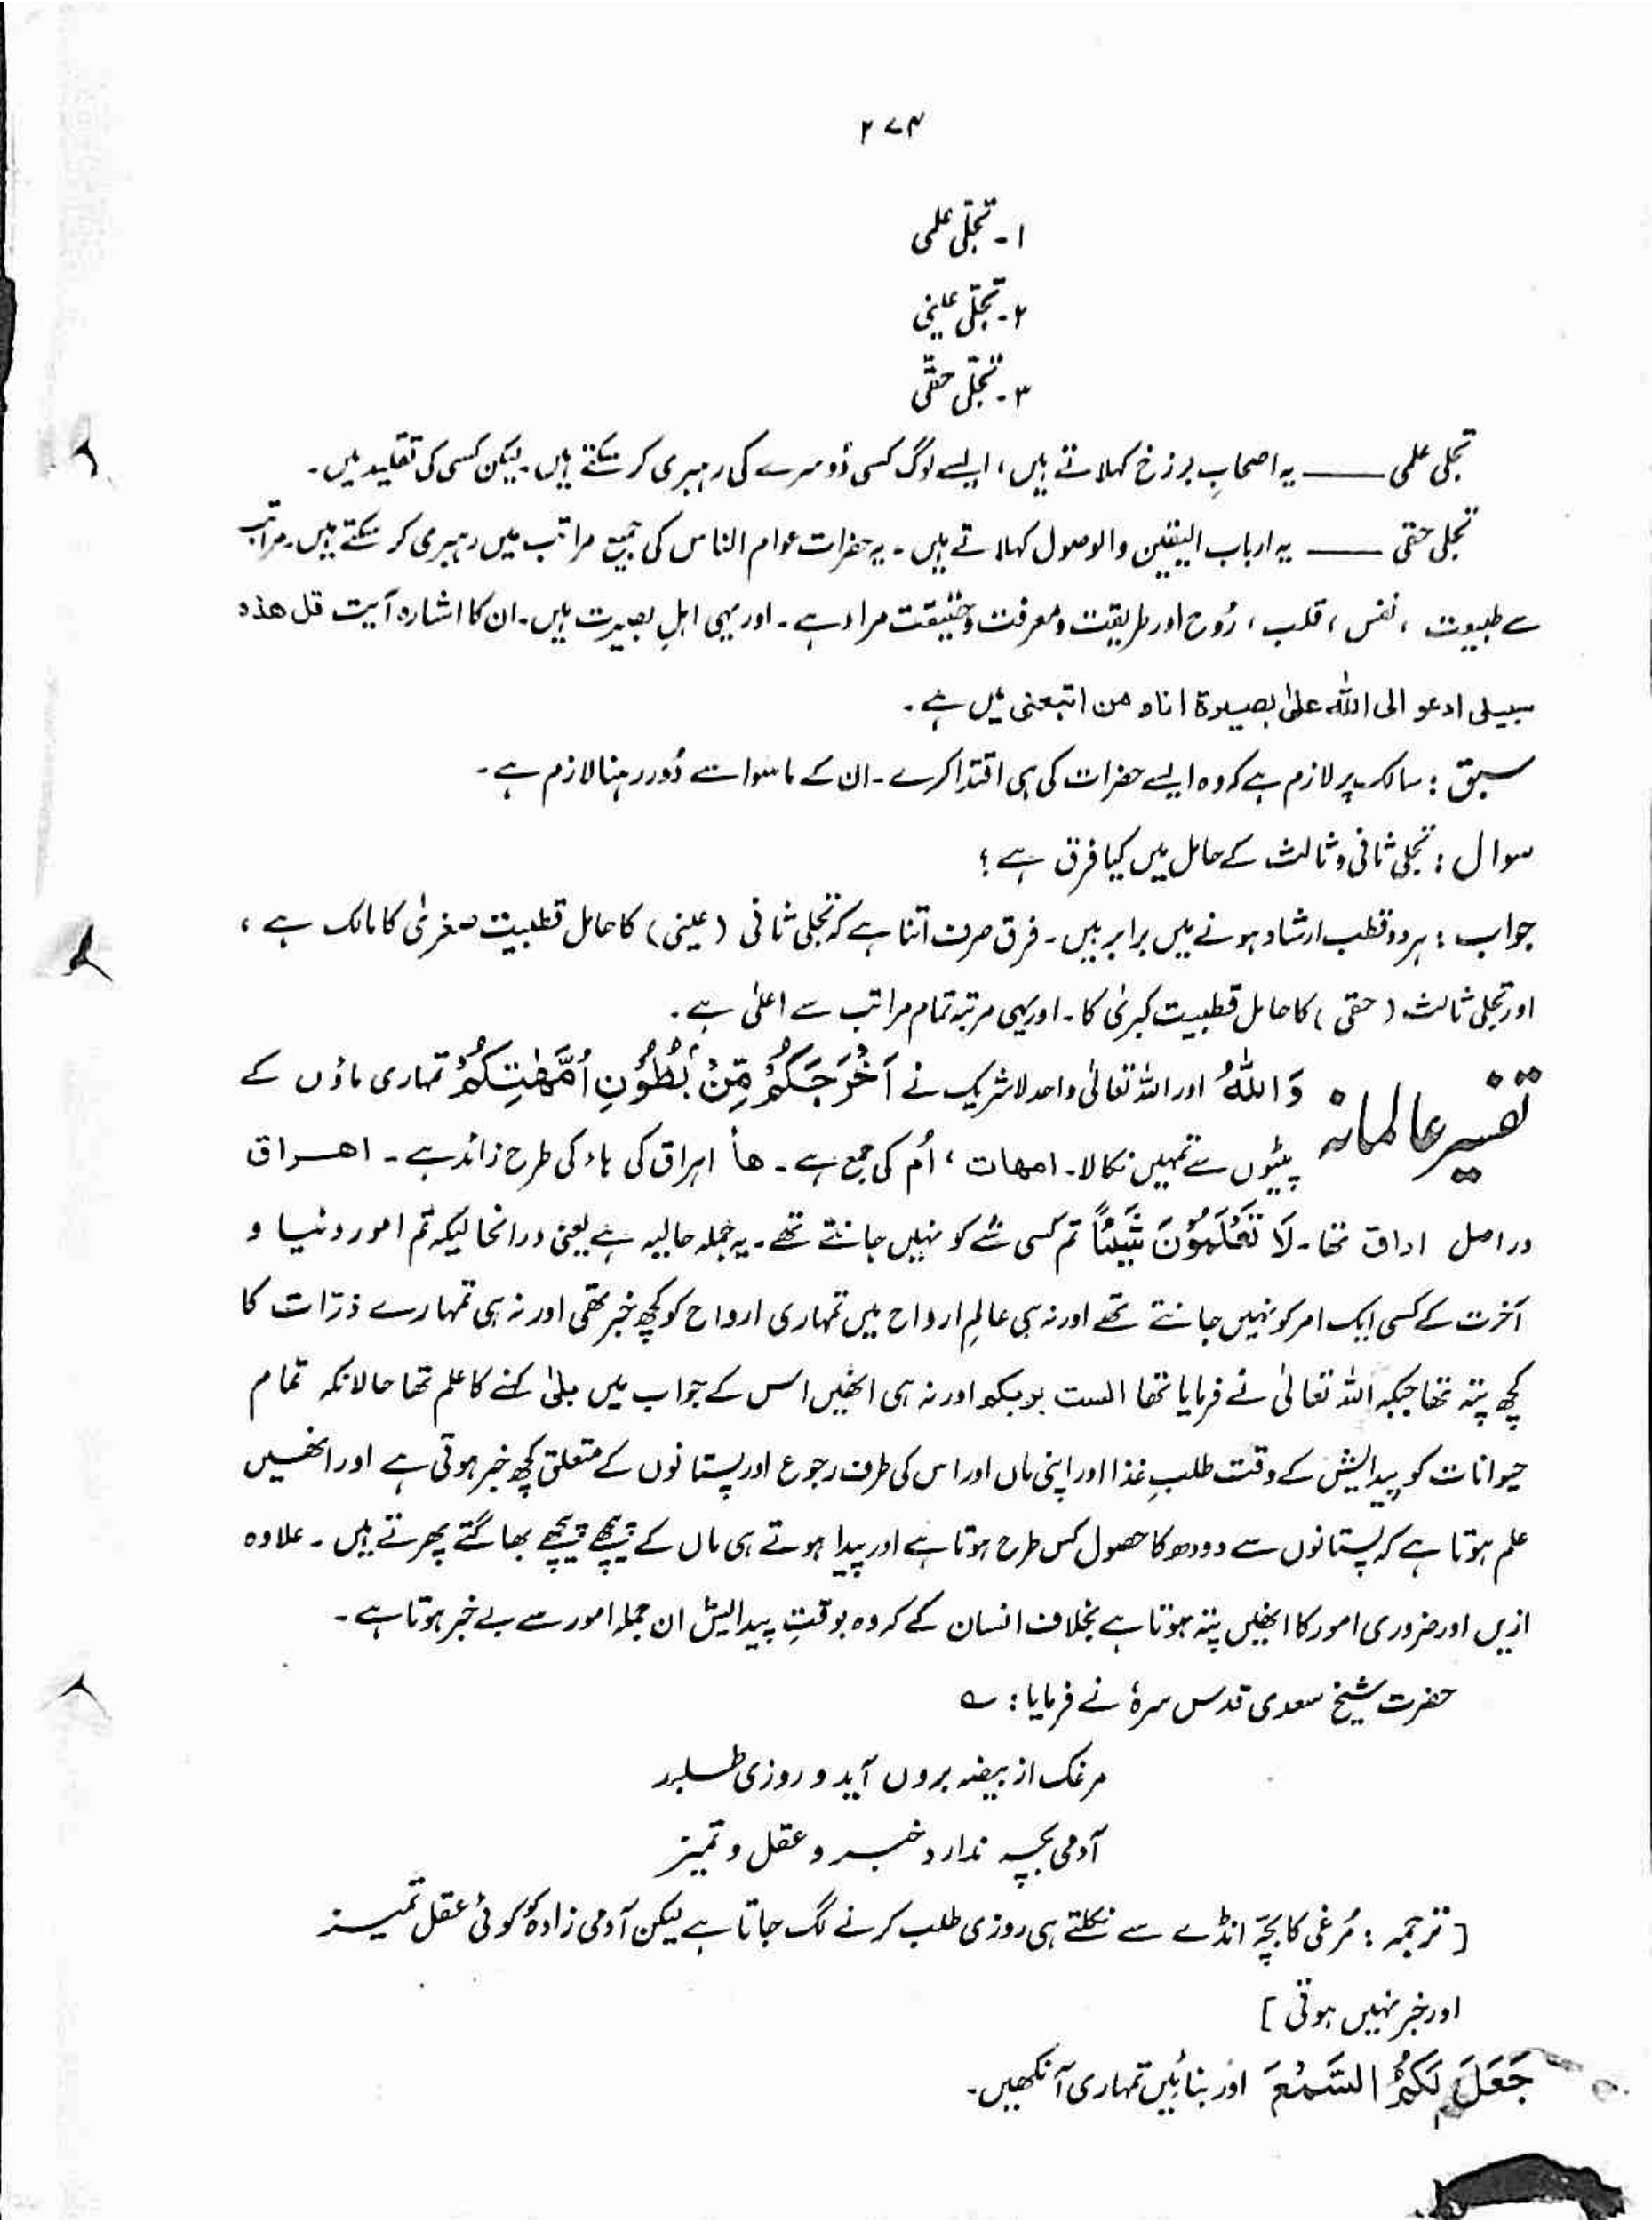 ۲۷۴
۱۔ تجلّی علمی
۲۔ تجلّی عینی
۳۔ تجلّی حقّی
تجلی علمی ــــــ یہ اصحابِ برزخ کہلاتے ہیں، ایسے لوگ کسی دُوسرے کی رہبری کر سکتے ہیں۔ لیکن کسی کی تقلید میں۔
تجلی حقی ــــــ یہ ارباب الیقین والوصول کہلاتے ہیں۔ یہ حضرات عوام الناس کی جمیع مراتب میں رہبری کر سکتے ہیں۔ مراتب
سے طبیعت، نفس، قلب، رُوح اور طریقت و معرفت و حقیقت مراد ہے۔ اور یہی اہلِ بصیرت ہیں۔ ان کا اشارہ آیت قل ھذہ
سبیلی ادعو الی اللہ علیٰ بصیرۃ انا و من اتبعنی میں ہے۔
سبق : سالک پر لازم ہے کہ وہ ایسے حضرات کی ہی اقتدا کرے۔ ان کے ماسوا سے دُور رہنا لازم ہے۔
سوال : تجلی ثانی و ثالث کے حامل میں کیا فرق ہے؟
جواب : ہر دو قطب ارشاد ہونے میں برابر ہیں۔ فرق صرف اتنا ہے کہ تجلی ثانی (عینی) کا حامل قطبیت صغریٰ کا مالک ہے،
اور تجلی ثالث (حقی) کا حامل قطبیت کبریٰ کا۔ اور یہی مرتبہ تمام مراتب سے اعلیٰ ہے۔
تفسیر عالمانہ وَاللّٰہُ اور اللہ تعالیٰ واحد لا شریک نے اَخْرَجَکُمْ مِّنْ بُطُوْنِ اُمَّھٰتِکُمْ تمہاری ماؤں کے
پیٹوں سے تمہیں نکالا۔ امھات، اُم کی جمع ہے۔ ھأ اہراق کی ہاء کی طرح زائد ہے۔ اھراق
دراصل اراق تھا۔ لَا تَعْلَمُوْنَ شَیْئًا تم کسی شے کو نہیں جانتے تھے۔ یہ جملہ حالیہ ہے یعنی درانحالیکہ تم امور دنیا و
آخرت کے کسی ایک امر کو نہیں جانتے تھے اور نہ ہی عالمِ ارواح میں تمہاری ارواح کو کچھ خبر تھی اور نہ ہی تمہارے ذرّات کا
کچھ پتہ تھا جبکہ اللہ تعالیٰ نے فرمایا تھا الست بربکم اور نہ ہی انھیں اس کے جواب میں بلیٰ کہنے کا علم تھا حالانکہ تمام
حیوانات کو پیدایش کے وقت طلبِ غذا اور اپنی ماں اور اس کی طرف رجوع اور پستانوں کے متعلق کچھ خبر ہوتی ہے اور انھیں
علم ہوتا ہے کہ پستانوں سے دودھ کا حصول کس طرح ہوتا ہے اور پیدا ہوتے ہی ماں کے پیچھے پیچھے بھاگتے پھرتے ہیں۔ علاوہ
ازیں اور ضروری امور کا انھیں پتہ ہوتا ہے بخلاف انسان کے کہ وہ بوقتِ پیدایش ان جملہ امور سے بے خبر ہوتا ہے۔
حضرت شیخ سعدی قدس سرہٗ نے فرمایا : ؎
مرغک از بیضہ بروں آید و روزی طلبد
آدمی بچہ ندارد خبر و عقل و تمیز
[ ترجمہ : مُرغی کا بچّہ انڈے سے نکلتے ہی روزی طلب کرنے لگ جاتا ہے لیکن آدمی زادہ کو کوئی عقل تمیز
اور خبر نہیں ہوتی ]
جَعَلَ لَکُمُ السَّمْعَ اور بنائیں تمہاری آنکھیں۔